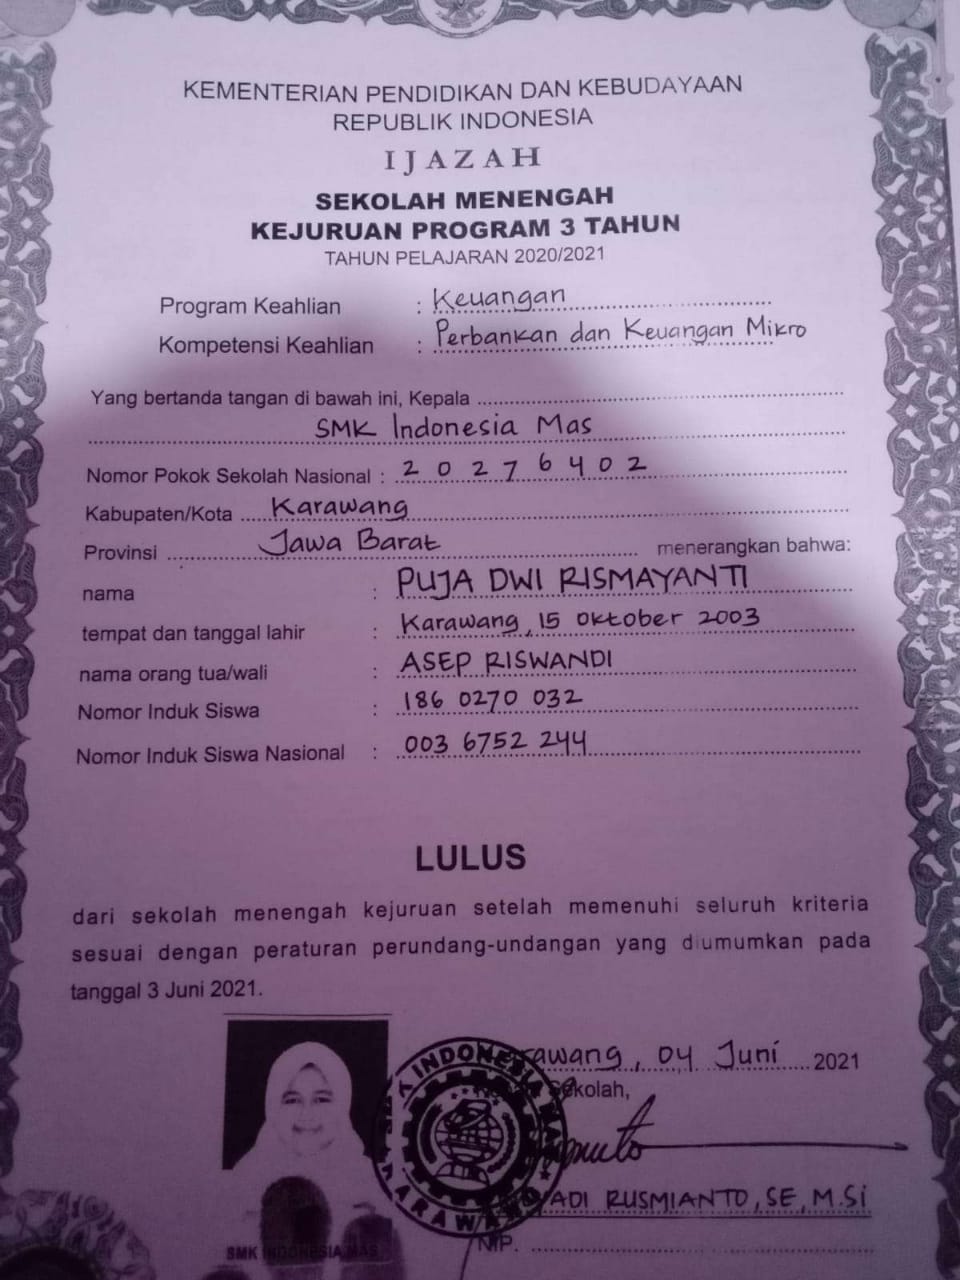 KEMENTERIAN PENDIDIKAN DAN KEBUDAYAAN
REPUBLIK INDONESIA
IJAZAH
SEKOLAH MENENGAH
KEJURUAN PROGRAM 3 TAHUN
TAHUN PELAJARAN 2020/2021
Program Keahlian : Keuangan
Kompetensi Keahlian : Perbankan dan Keuangan Mikro
Yang bertanda tangan di bawah ini, Kepala
SMK Indonesia Mas
Nomor Pokok Sekolah Nasional : 20276402
Kabupaten/Kota Karawang
Provinsi Jawa Barat menerangkan bahwa:
nama : PUJA DWI RISMAYANTI
tempat dan tanggal lahir : Karawang, 15 Oktober 2003
nama orang tua/wali : ASEP RISWANDI
Nomor Induk Siswa : 186 0270 032
Nomor Induk Siswa Nasional : 003 6752 244
LULUS
dari sekolah menengah kejuruan setelah memenuhi seluruh kriteria
sesuai dengan peraturan perundang-undangan yang diumumkan pada
tanggal 3 Juni 2021.
04 Juni 2021
Sekolah,
RUSMIANTO, SE, M.Si
NIP.
SMK INDONESIA MAS
INDONESIA
KARAWANG